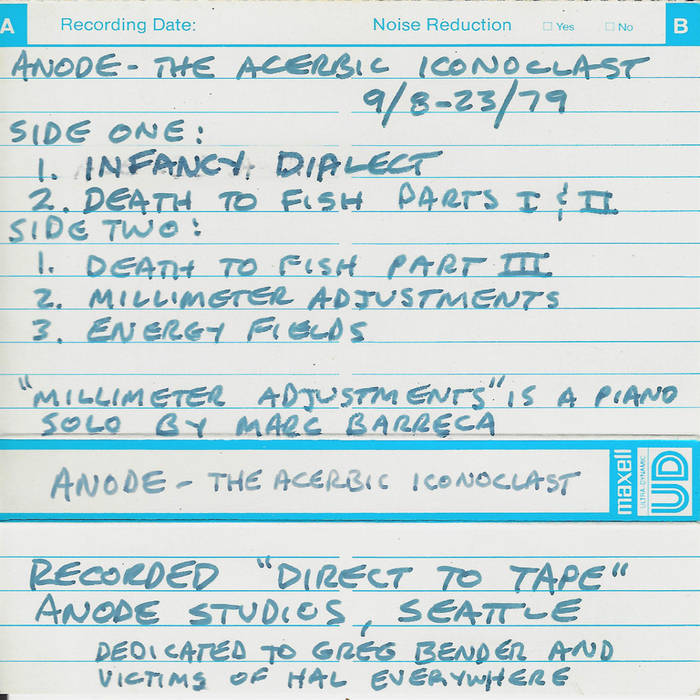 A Recording Date: Noise Reduction Yes No B
ANODE - THE ACERBIC ICONOCLAST
9/8-23/79
SIDE ONE:
1. INFANCY DIALECT
2. DEATH TO FISH PARTS I & II
SIDE TWO:
1. DEATH TO FISH PART III
2. MILLIMETER ADJUSTMENTS
3. ENERGY FIELDS
"MILLIMETER ADJUSTMENTS" IS A PIANO
SOLO BY MARC BARRECA
ANODE - THE ACERBIC ICONOCLAST
maxell
ULTRA DYNAMIC
UD
RECORDED "DIRECT TO TAPE"
ANODE STUDIOS, SEATTLE
DEDICATED TO GREG BENDER AND
VICTIMS OF HAL EVERYWHERE